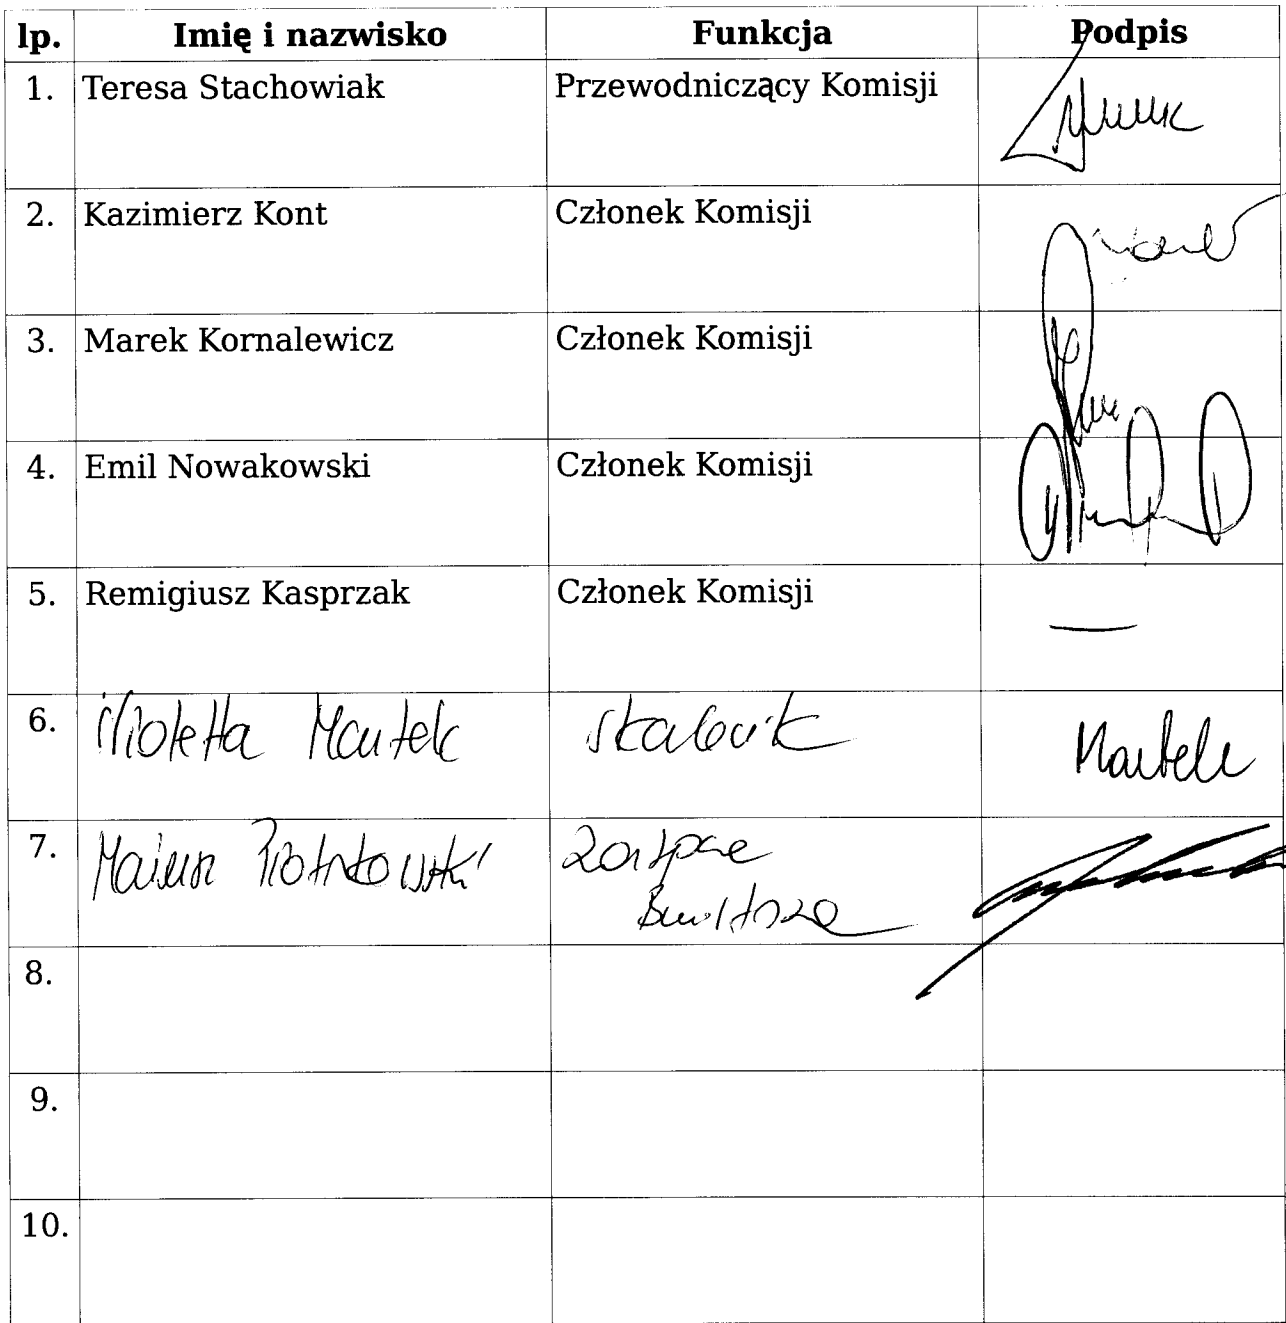 lp. Imię i nazwisko Funkcja Podpis
1. Teresa Stachowiak Przewodniczący Komisji
2. Kazimierz Kont Członek Komisji
3. Marek Kornalewicz Członek Komisji
4. Emil Nowakowski Członek Komisji
5. Remigiusz Kasprzak Członek Komisji —
6. Wioletta Mantek skarbnik
7. Mariusz Piotrkowski Zastępca
Burmistrza
8.
9.
10.